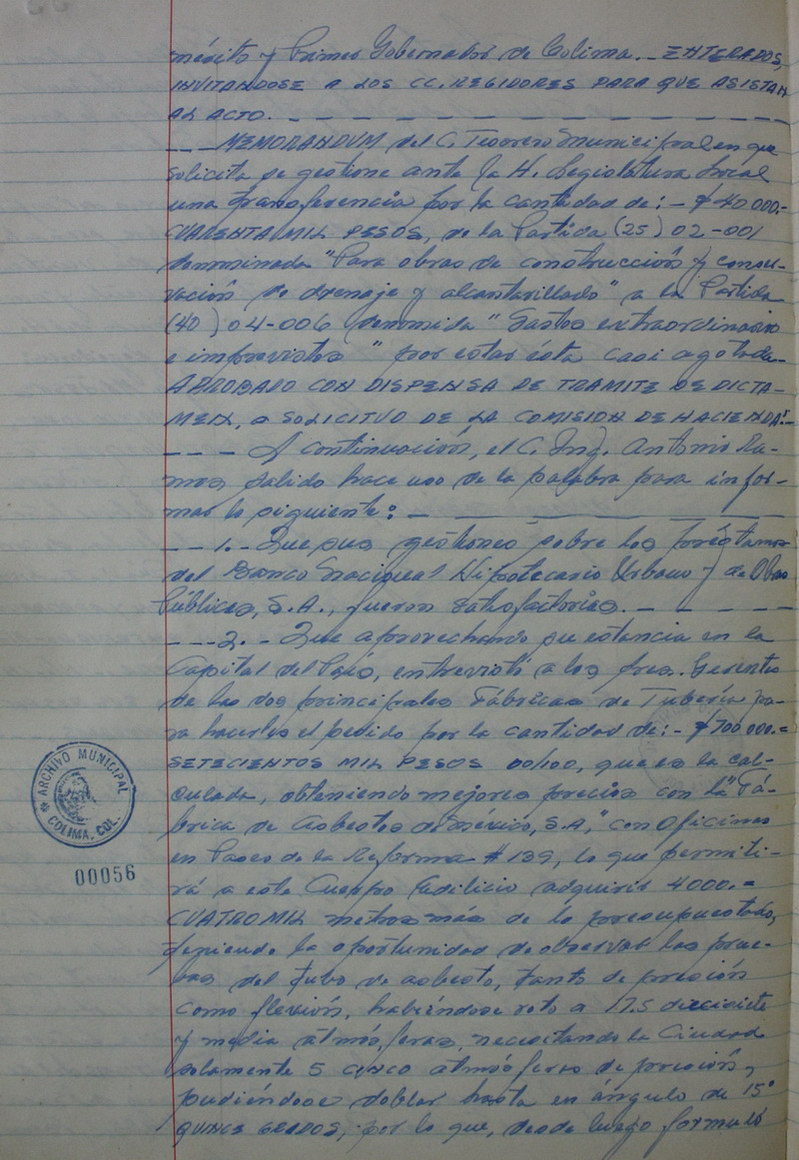 mérito y Primer Gobernador de Colima._ ENTERADOS,
INVITANDOSE A LOS CC. REGIDORES PARA QUE ASISTAN
AL ACTO. _ _ _ _ _ _ _ _ _ _ _ _
_ _ _ MEMORANDUM del C. Tesorero Municipal en que
solicita se gestione ante la H. Legislatura Local
una transferencia por la cantidad de:- $40 000.-
CUARENTA MIL PESOS, de la Partida (25) 02-001
denominada "Para obras de construcción y conser-
vación de drenaje y alcantarillado" a la Partida
(40) 04-006 denomida "Gastos extraordinarios
e imprevistos" por estar ésta casi agotada-
APROBADO CON DISPENSA DE TRAMITE DE DICTA-
MEN, A SOLICITUD DE LA COMISION DE HACIENDA.-
_ _ _ A continuación, el C. Ing. Antonio Ra-
mos Salido hace uso de la palabra para infor-
mar lo siguiente: _ _ _ _ _
_ _ _ 1.- Que sus gestiones sobre los préstamos
del Banco Nacional Hipotecario Urbano y de Obras
Públicas, S.A., fueron satisfactorias. _ _ _ _
_ _ _ 2.- Que aprovechando su estancia en la
Capital del País, entrevistó a los Sres. Gerentes
de las dos principales Fábricas de Tubería pa-
ra hacerles el pedido por la cantidad de:- $700 000.=
SETECIENTOS MIL PESOS 00/100, que es la cal-
culada, obteniendo mejores precios con la "Fá-
brica de Asbestos de México, S.A," con Oficinas
en Paseo de la Reforma # 139, lo que permiti-
rá a este Cuerpo Edilicio adquirir 4000.=
CUATRO MIL metros más de lo presupuestado,
teniendo la oportunidad de observar las prue-
bas del tubo de asbesto, tanto de presión
como flexión, habiéndose roto a 17.5 diecisiete
y media atmósferas, necesitando la Ciudad
solamente 5 CINCO atmósferas de presión,
pudiéndose doblar hasta en ángulo de 15°
QUINCE GRADOS, por lo que, desde luego formuló
ARCHIVO MUNICIPAL
COLIMA, COL.
00056